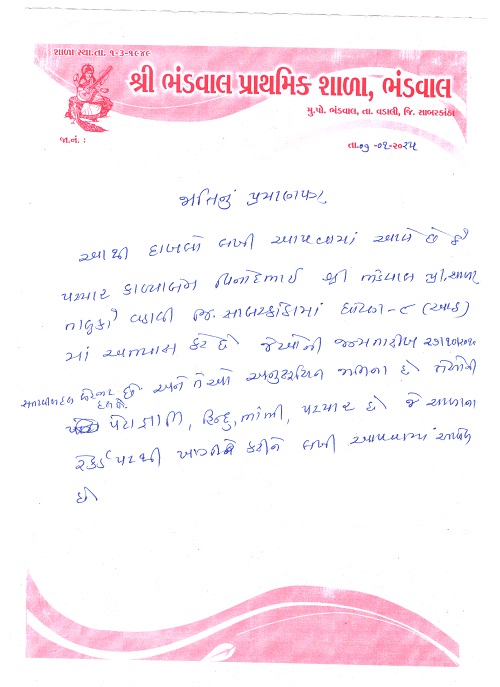 શાળા સ્થા.તા. ૧-૩-૧૯૪૯
શ્રી ભંડવાલ પ્રાથમિક શાળા, ભંડવાલ
મુ.પો. ભંડવાલ, તા. વડાલી, જિ. સાબરકાંઠા
જા.નં. :
તા.
જાતિનું પ્રમાણપત્ર
આથી દાખલો લખી આપવામાં આવે છે કે
પરમાર વિનોદભાઈ શ્રી ભંડવાલ પ્રા.શાળા
તાલુકો વડાલી જિ. સાબરકાંઠામાં ધોરણ-૮ (આઠ)
માં અભ્યાસ કરે છે જેઓની જન્મતારીખ
છે અને તેઓ અનુસૂચિત જાતિના છે તેઓની
પેટાજ્ઞાતિ, હિન્દુ, પરમાર છે જે શાળાના
રેકર્ડ પરથી ખાત્રી કરીને લખી આપવામાં આવેલ
છે